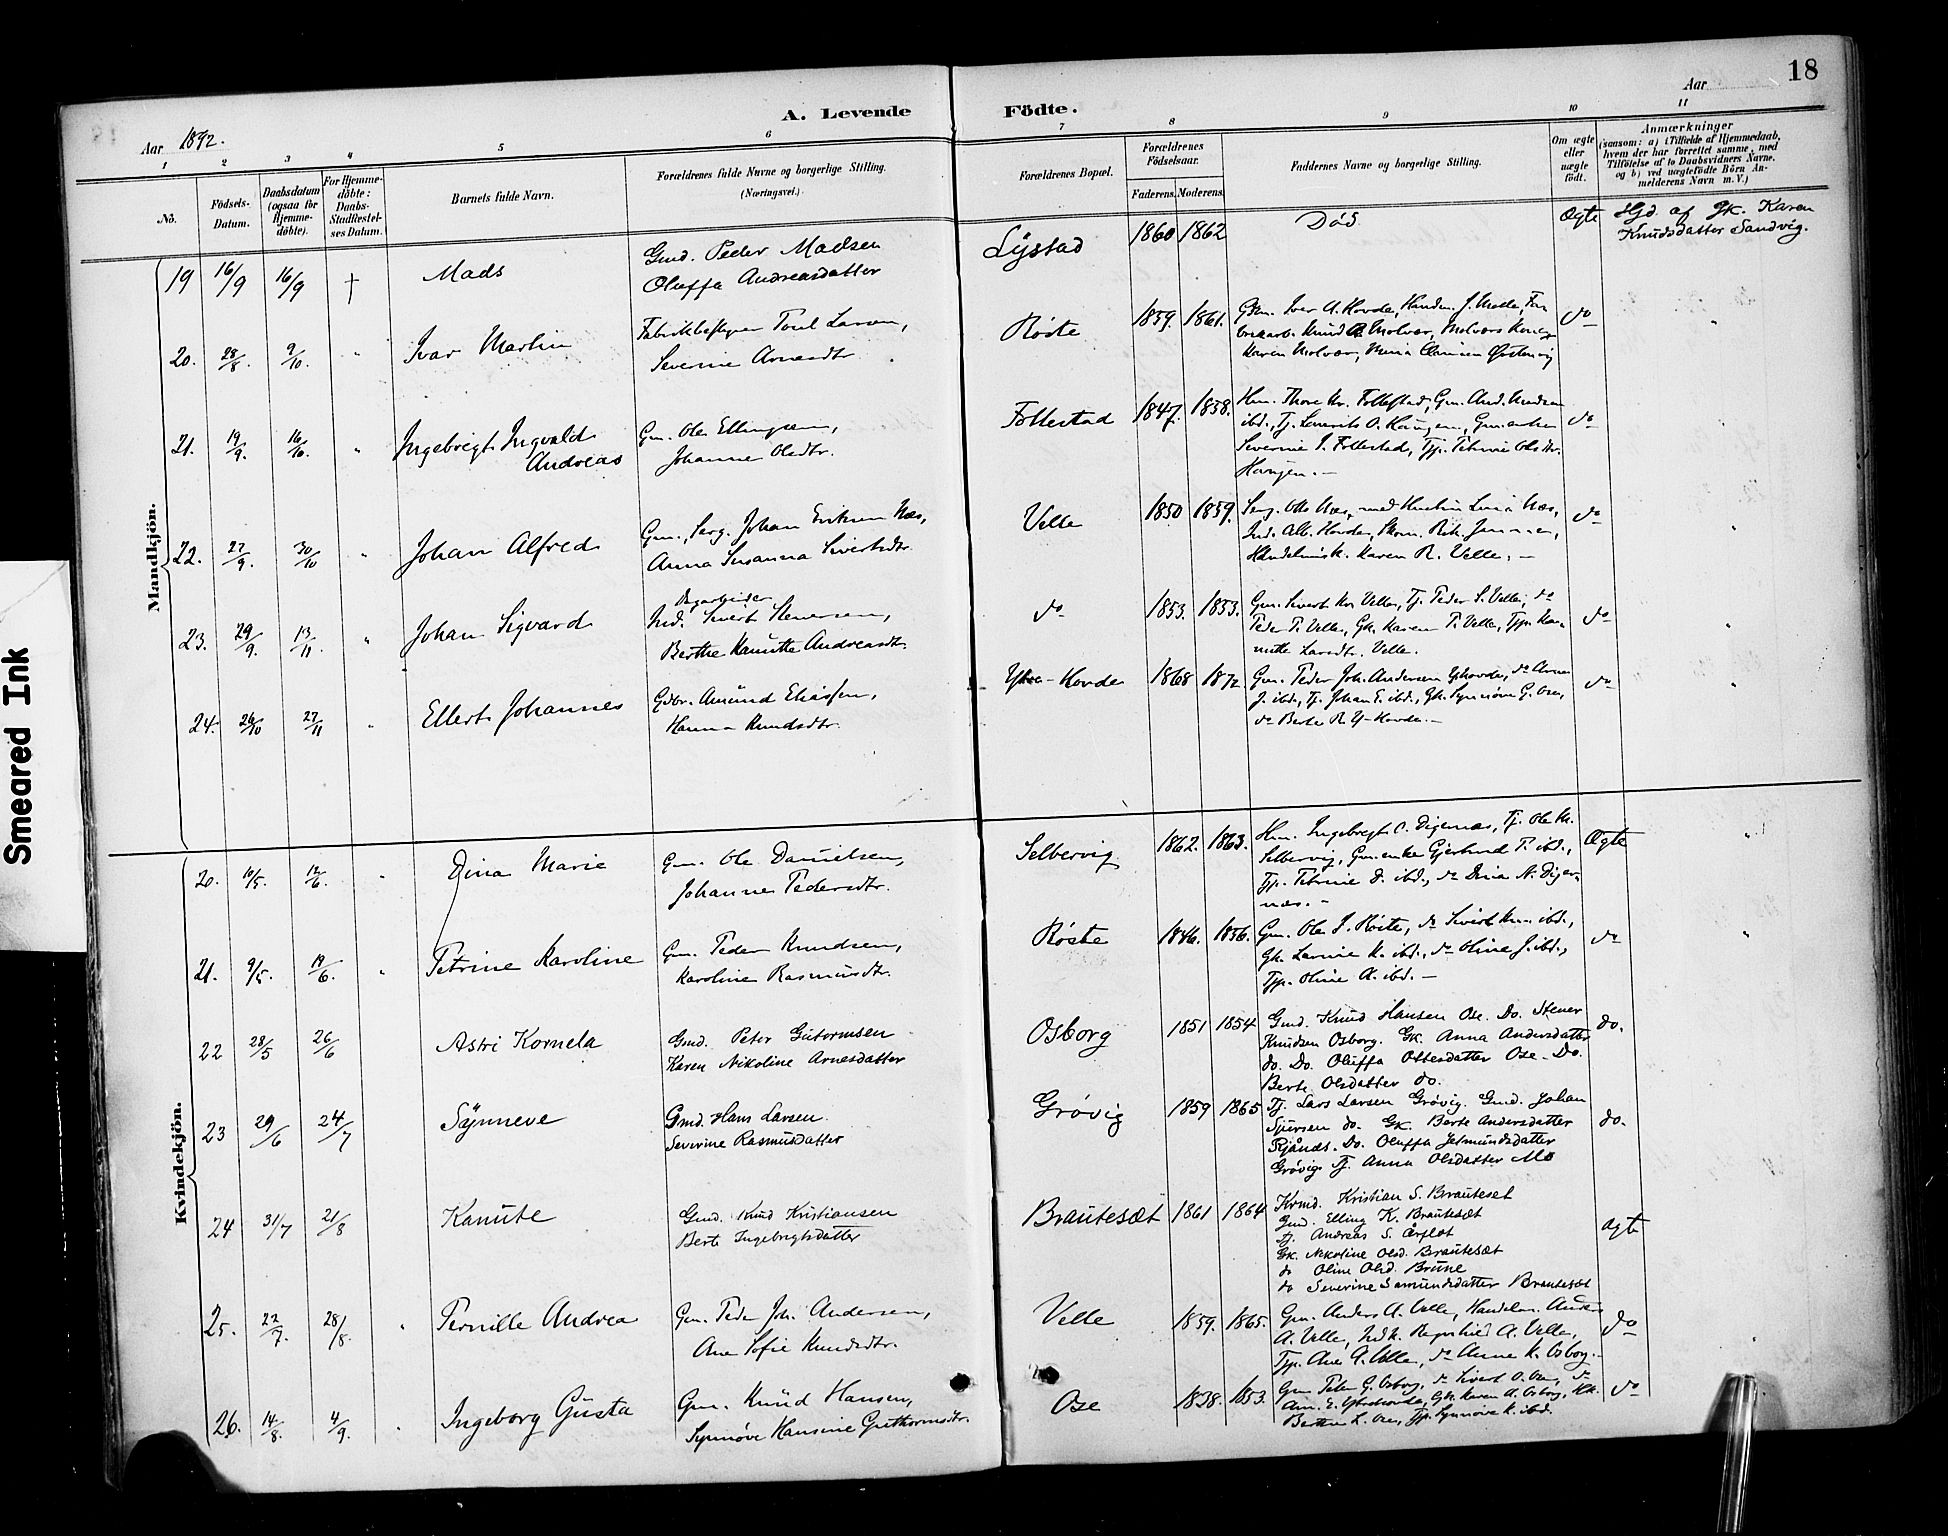 18
A. Levende Födte.
Aar 1892.
Aar
1 2 3 4 5 6 7 8 9 10 11
No.
Födsels-
Datum.
Daabsdatum
(ogsaa for
Hjemme-
döbte).
For Hjemme-
döbte:
Daabs-
Stadfæstel-
ses Datum.
Barnets fulde Navn.
Forældrenes fulde Navne og borgerlige Stilling.
(Næringsvei).
Forældrenes Bopæl.
Forældrenes
Födselsaar.
Faderens. Moderens.
Faddernes Navne og borgerlige Stilling.
Om ægte
eller
uægte
födt.
Anmærkninger
(saasom: a) i Tilfælde af Hjemmedaab,
hvem der har forrettet samme, med
Tilföielse af to Daabsvidners Navne.
og b) ved uægtefödte Börn An-
melderens Navn m. V.)
Mandkjön.
19 16/9 16/9 † Mads
Gmd. Peder Madsen
Oluffa Andreasdatter
Lystad 1860 1862 Död Ægte
Hjd. af Gk. Karen
Knudsdatter Sandvig.
20. 28/8. 9/10. " Ivar Martin
Fabrikbestyrer Poul Larsen,
Severine Arnesdtr.
Röste 1859. 1861.
Gkm. Iver A. Hovde, Handm. J. Molle,
Knud Molvær, Molværs
Karen Molvær,
do
21. 19/9. 16/10. " Ingebrigt Ingvald
Andreas
Gm. Ole Ellingsen,
Johanne Olsdtr.
Follestad 1847. 1858.
Hm. Thore Kr. Follestad, Gm. And. Knudsen
ibd., Tj. Laurits O. Haugen, Gm.enke
Severine I. Follestad, Tjp. Petrine Olsdtr.
Haugen. —
do
22. 27/9. 30/10 " Johan Alfred
Gm., Serg. Johan Eriksen Næs,
Anna Susanna Sivertsdtr.
Velle 1850 1859.
Serg. Otto Næs, med Hustru Lina Næs,
Ind. Hovde, Skom. Rik. Jensen,
Karen R. Velle. —
do
23. 29/9. 13/11. " Johan Sigvard
Dagarbeider
Ind. Sivert Stenersen,
Berthe Kanutte Andreasdtr.
do 1853. 1853.
Gm. Sivert Kr. Velle, Tj. Peder S. Velle, do
Peder P. Velle, Gk. Karen P. Velle, Tjp. Ka-
nutte Larsdtr. Velle.
do
24. 26/10 27/11 " Ellert Johannes
Gdbr. Amund Eliassen,
Hanna Knudsdtr.
Ytre-Hovde 1868 1872.
Gm. Peder Joh. Andersen Y-hovde, do Arne
J. ibd., Tj. Johan E. ibd., Gk. Synnöve G. Ose,
do Berte R. Y-Hovde. —
do
Kvindekjön.
20. 10/5. 12/6. " Dina Marie
Gm. Ole Danielsen,
Johanne Pedersdtr.
Selbervig 1862. 1863.
Hm. Ingebregt O. Digernæs, Tj. Ole Kr.
Selbervig, Gm.enke Gjertrud P. ibd.,
Tjp. Petrine D. ibd., do Dina N. Diger-
næs. —
Ægte
21. 9/5. 19/6. " Petrine Karoline
Gm. Peder Knudsen,
Karoline Rasmusdtr.
Röste 1846. 1856.
Gm. Ole I. Röste, do Sivert Kn. ibd.,
Gk. Lavine K. ibd., do Oline J. ibd.,
Tjp. Oline A. ibd. —
do
22 28/5 26/6 Astri Kornela
Gmd. Peter Gutormsen
Karen Nikoline Arnesdatter
Osborg 1851 1854
Gmd. Knud Hansen Ose. Do. Stener
Knudsen Osborg. Gk. Anna Andersdatter
do. Do. Oluffa Ottesdatter Ose. Do.
Berte Olsdatter do.
do.
23 29/6 24/7 Synneve
Gmd. Hans Larsen
Severine Rasmusdatter
Grövig 1859 1865
Tj. Lars Larsen Grövig. Gmd. Johan
Sjursen do. Gk. Berte Andersdatter
Rjånds. Do. Oluffa Jetmundsdatter
Grövig. Tj. Anna Olsdatter Mo
do.
24 31/7 21/8 Kanute
Gmd. Knud Kristiansen
Berte Ingebrigtsdatter
Brautesæt 1861 1864
Krmd. Kristian S. Brauteset
Gmd. Elling K. Brautesæt
Tj. Andreas S. Ærflot
Gk. Nikoline Olsd. Brautesæt
do Oline Olsd. Brune
do Severine Samundsdatter Brautesæt
ægte
25. 22/7. 28/8. " Pernille Andrea
Gm. Peder Joh. Andersen,
Ane Sofie Knudsdtr.
Velle 1859. 1865.
Gm. Anders A. Velle, Handelsm. Anders
A. Velle, Indk. Ragnhild A. Velle,
Tjp. Ane A. Velle, do Anne K. Osborg. —
do
26. 14/8. 4/9. " Ingeborg Gusta
Gm. Knud Hansen,
Synnöve Hansine Guthormsdtr.
Ose 1838. 1853.
Gm. Peter G. Osborg, do Sivert O. Ose, do
Am. E. Ytrehovde, Gk. Karen A. Osborg, Hk.
Berthe L. Ose, Tjp. Synnöve K. ibd.
do
Smeared Ink